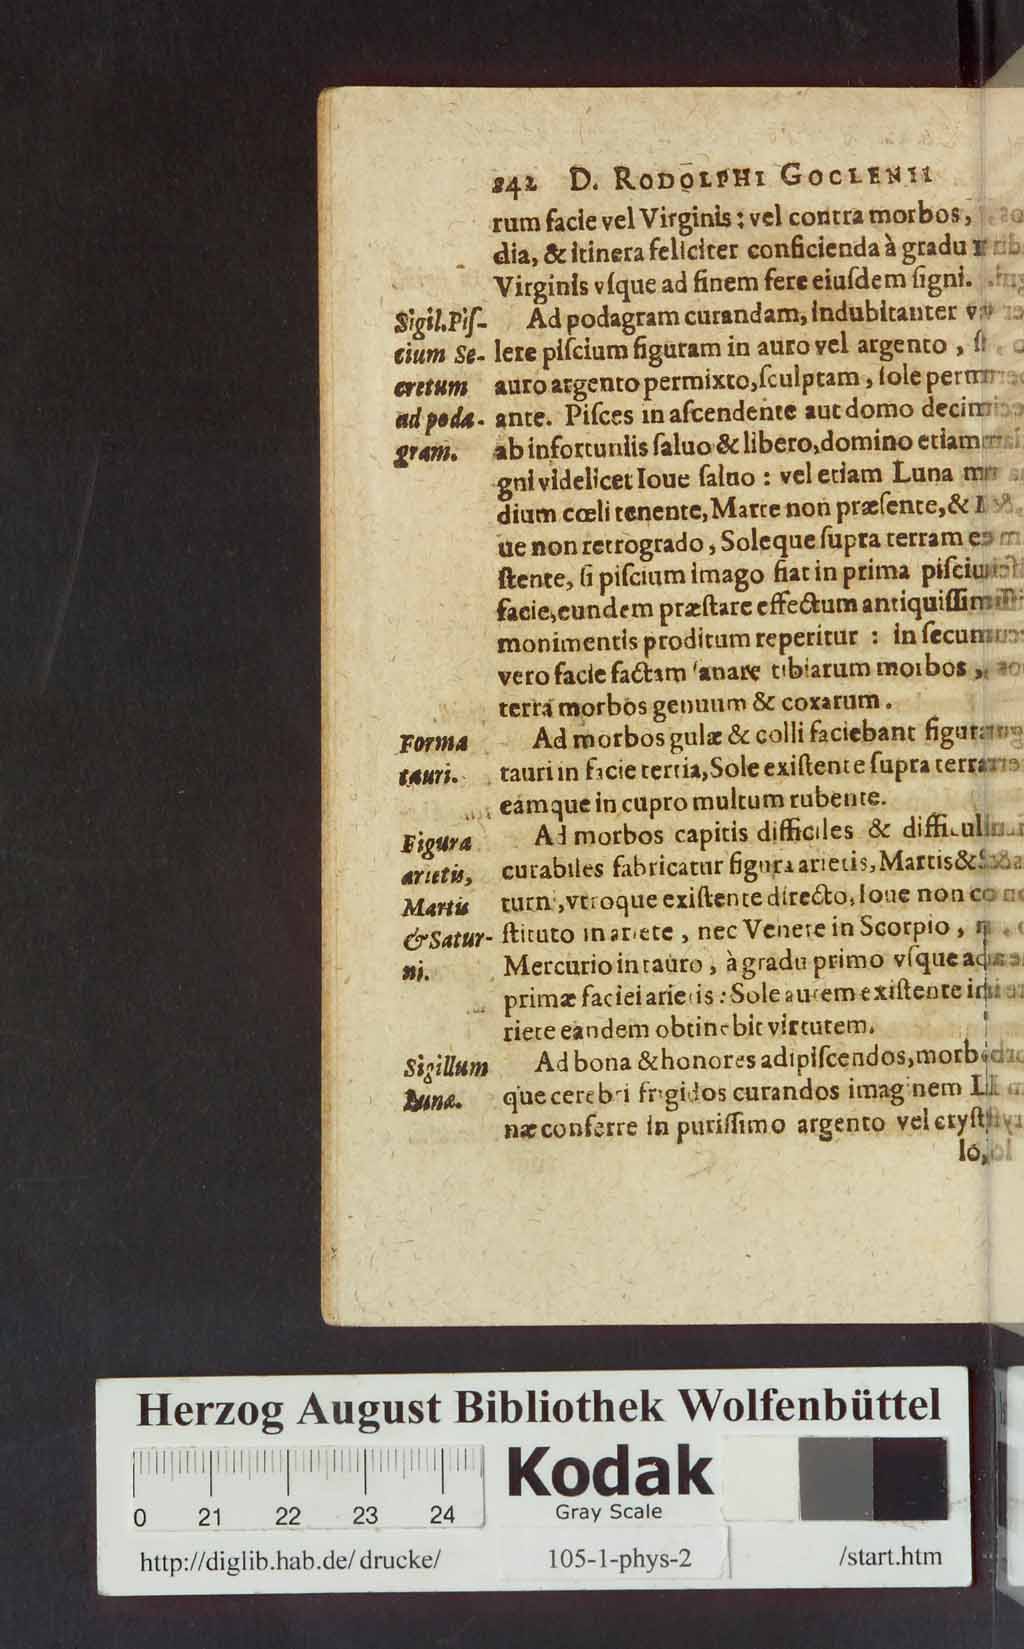 242 D. RODOLPHI GOCLENII
rum facie vel Virginis; vel contra morbos,
dia, & itinera feliciter conficienda à gradu 1
Virginis vſque ad finem fere eiuſdem ſigni.
Sigil. Piſ-
cium Se-
cretum
ad poda-
gram.
Ad podagram curandam, indubitanter va
lere piſcium figuram in auro vel argento, ſi
auro argento permixto, ſculptam, ſole perm
ante. Piſces in aſcendente aut domo decim
ab infortuniis ſaluo & libero, domino etiam
gni videlicet Ioue ſaluo: vel etiam Luna me
dium cœli tenente, Marte non præſente, & I
ue non retrogrado, Soleque ſupra terram e
ſtente, ſi piſcium imago fiat in prima piſciu
facie, eundem præſtare effectum antiquiſſim
monimentis proditum reperitur: in ſecun
vero facie factam ſanare tibiarum morbos,
terra morbos genuum & coxarum.
Forma
tauri.
Ad morbos gulæ & colli faciebant figur
tauri in facie tertia, Sole exiſtente ſupra terra
eamque in cupro multum rubente.
Figura
arietis,
Martis
& Satur-
ni.
Ad morbos capitis difficiles & difficul
curabiles fabricatur figura arietis, Martis & S
turni, vtroque exiſtente directo, Ioue non co
ſtituto in ariete, nec Venere in Scorpio,
Mercurio in tauro, à gradu primo vſque ad
primæ faciei arietis: Sole autem exiſtente in
riete eandem obtinebit virtutem.
Sigillum
Lunæ.
Ad bona & honores adipiſcendos, morb
que cerebri frigidos curandos imaginem L
næ conferre in puriſſimo argento vel cryſt
lo,
Herzog August Bibliothek Wolfenbüttel
0 21 22 23 24
Kodak
Gray Scale
http://diglib.hab.de/drucke/ 105-1-phys-2 /start.htm